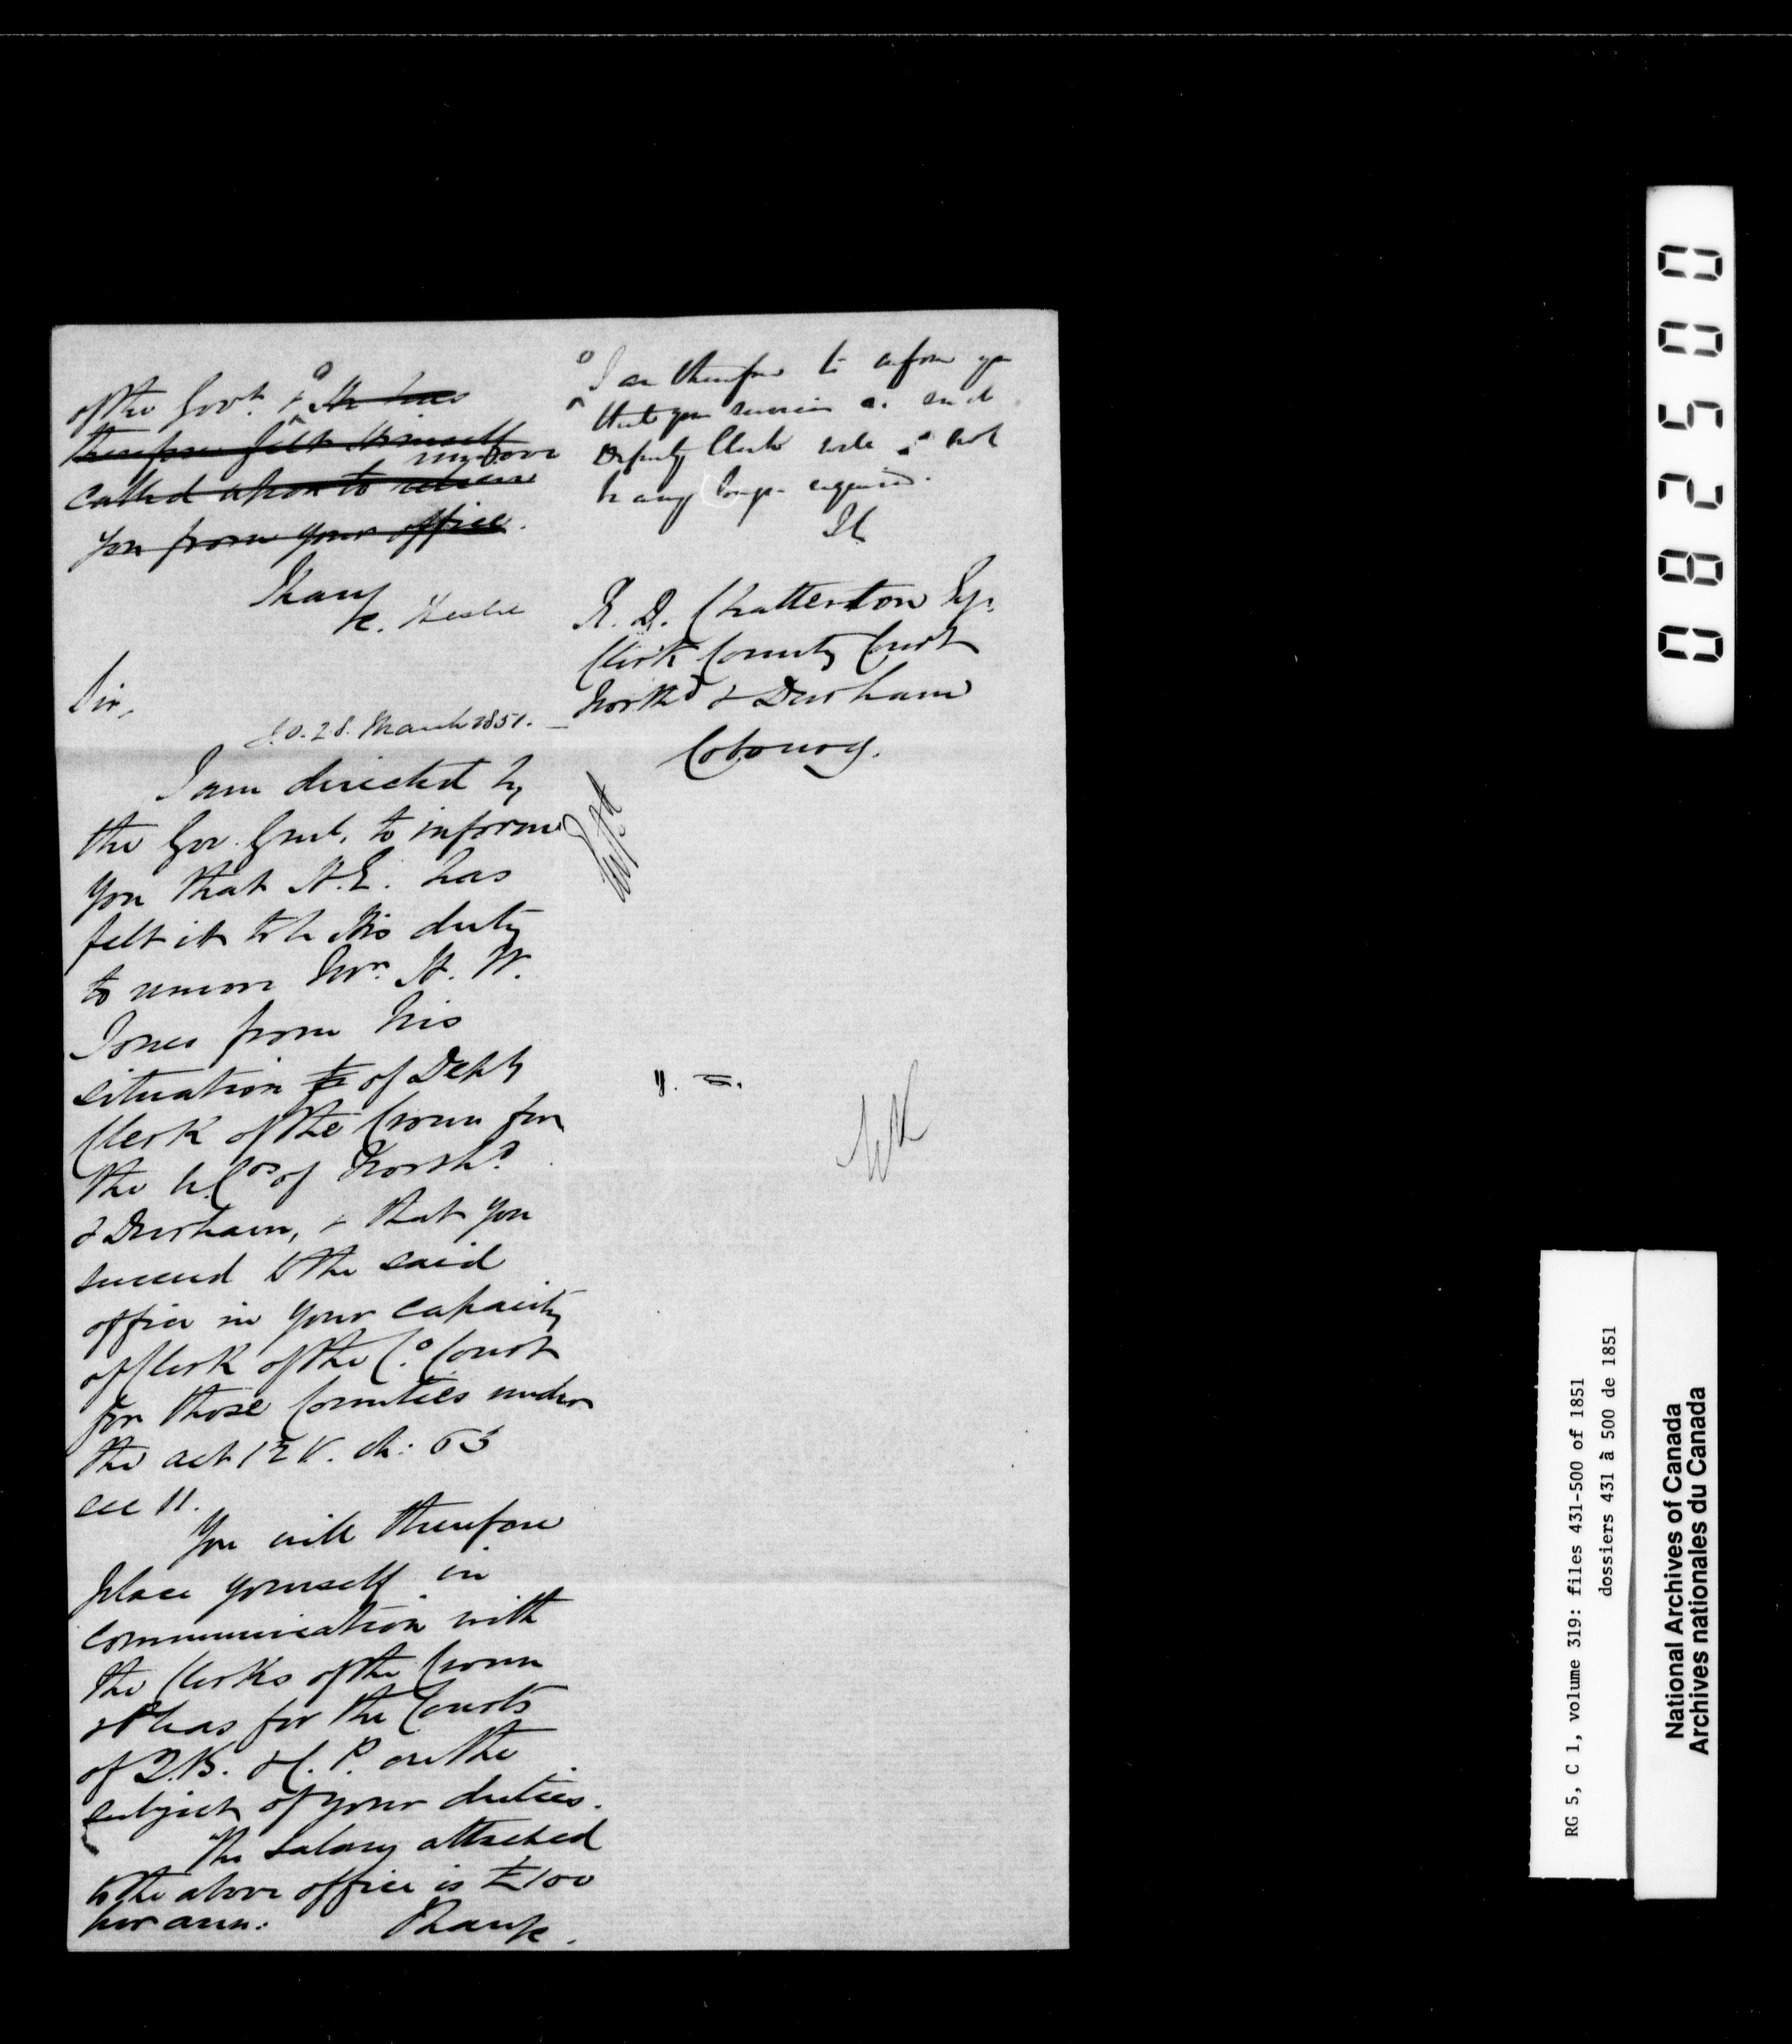 of the Govt. & He has
therefore felt Himself
called upon to remove
you from your office.
I have
&c.
Sir,
S.O. 28. March 1851.
I am directed by
the Gov. Genl. to inform
you that H.E. has
felt it to be His duty
to remove Mr. H. W.
Jones from his
situation to of Depy
Clerk of the Crown for
the U. Cos of Northd
& Durham, & that you
succeed to the said
office in your capacity
of Clerk of the Co. Court
for those Counties under
the act 12 V. ch: 63
sec 11.
You will therefore
place yourself in
communication with
the Clerks of the Crown
& Pleas for the Courts
of Q.B. & C. P. on the
subject of your duties.
The Salary attached
to the above office is £100
per ann:
I have &c.
I am therefore to inform you
that your services as such
Deputy Clerk will not
be any longer required.
R. D. Chatterton Esqr.
Clerk County Court
Northd & Durham
Cobourg.
082500
RG 5, C 1, volume 319: files 431-500 of 1851
dossiers 431 à 500 de 1851
National Archives of Canada
Archives nationales du Canada